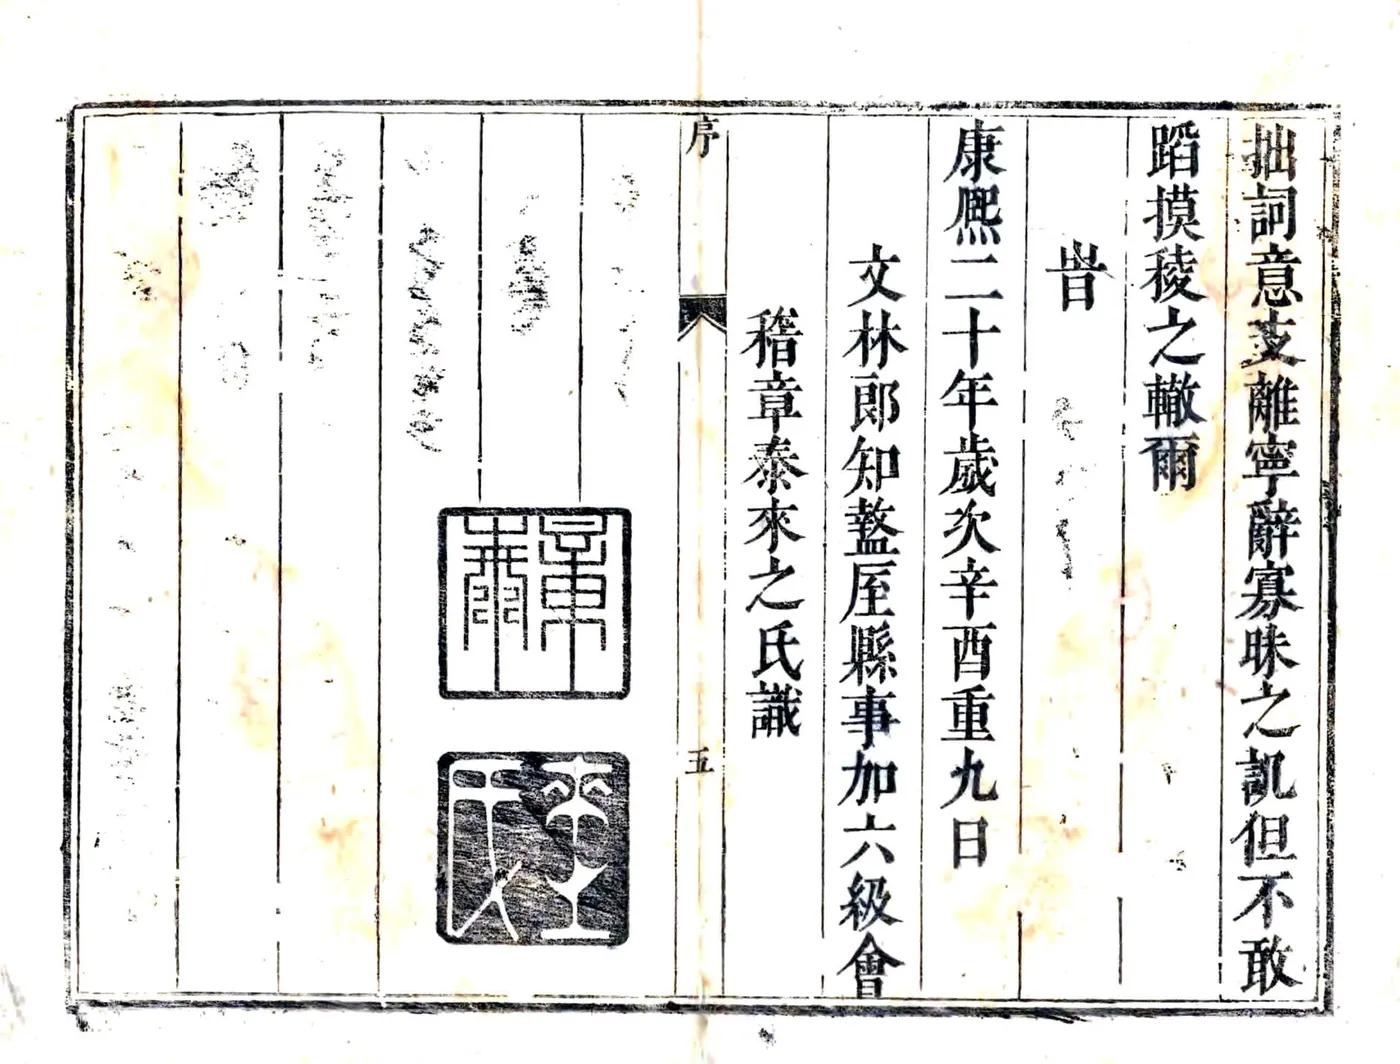 拙詞意支離寧辭寡昧之訊但不敢
蹈摸稜之轍爾
旹
康熙二十年歲次辛酉重九日
文林郎知盩厔縣事加六級會
稽章泰來之氏識
序
五